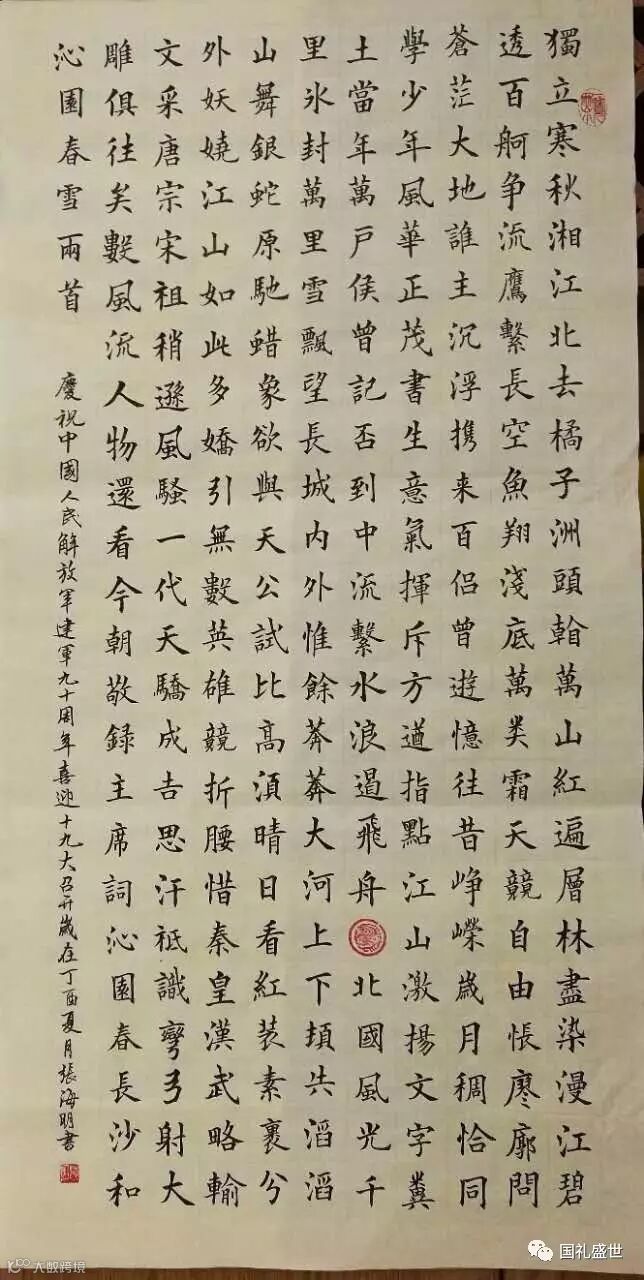 獨立寒秋湘江北去橘子洲頭翰萬山紅遍層林盡染漫江碧
透百舸争流鷹繫長空魚翔淺底萬类霜天競自由悵廖廓問
蒼茫大地誰主沉浮携来百侣曾遊憶往昔峥嶸歲月稠恰同
學少年風華正茂書生意氣揮斥方遒指點江山激揚文字糞
土當年萬户侯曾記否到中流繫水浪遏飛舟 北國風光千
里氷封萬里雪飄望長城内外惟餘莽莽大河上下頓失滔滔
山舞銀蛇原馳蜡象欲與天公試比高須晴日看紅装素裹兮
外妖嬈江山如此多嬌引無數英雄競折腰惜秦皇漢武略輸
文采唐宗宋祖稍遜風騷一代天驕成吉思汗祗識彎弓射大
雕俱往矣數風流人物還看今朝敬録主席詞沁園春長沙和
沁園春雪兩首 慶祝中國人民解放軍建軍九十周年喜迎十九大召开歲在丁酉夏月張海明書
大数跨境
国礼盛世